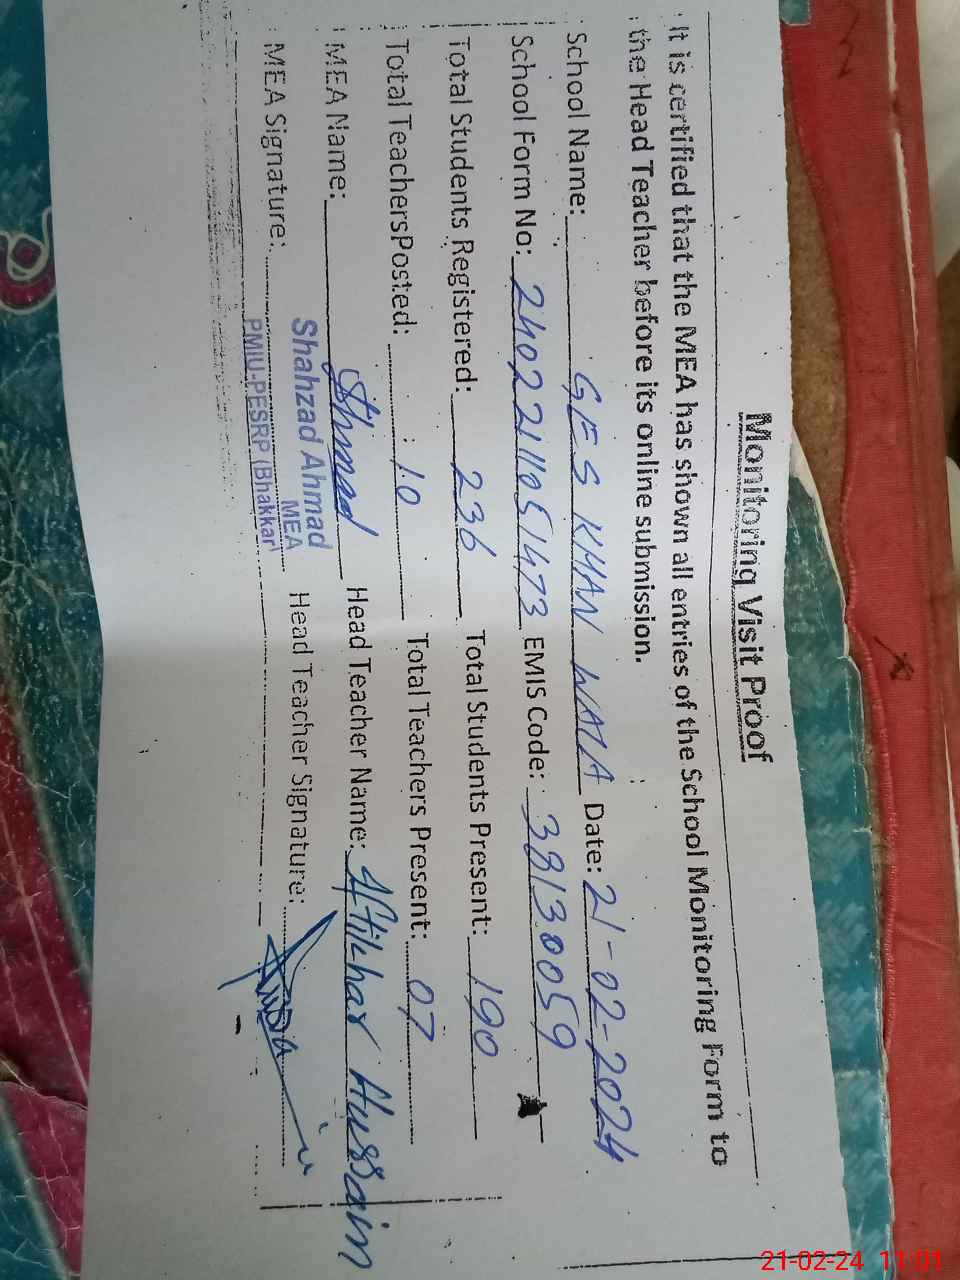 Monitoring Visit Proof
It is certified that the MEA has shown all entries of the School Monitoring Form to
the Head Teacher before its online submission.
School Name: GES KHAN WALA Date: 21-02-2024
School Form No: 2402211051473 EMIS Code: 38130059
Total Students Registered: 236 Total Students Present: 190
Total TeachersPosted: 10 Total Teachers Present: 07
MEA Name: Ahmad Head Teacher Name: Iftikhar Hussain
MEA Signature: Head Teacher Signature:
Shahzad Ahmad
MEA
PMIU-PESRP (Bhakkar)
21-02-24 11:01